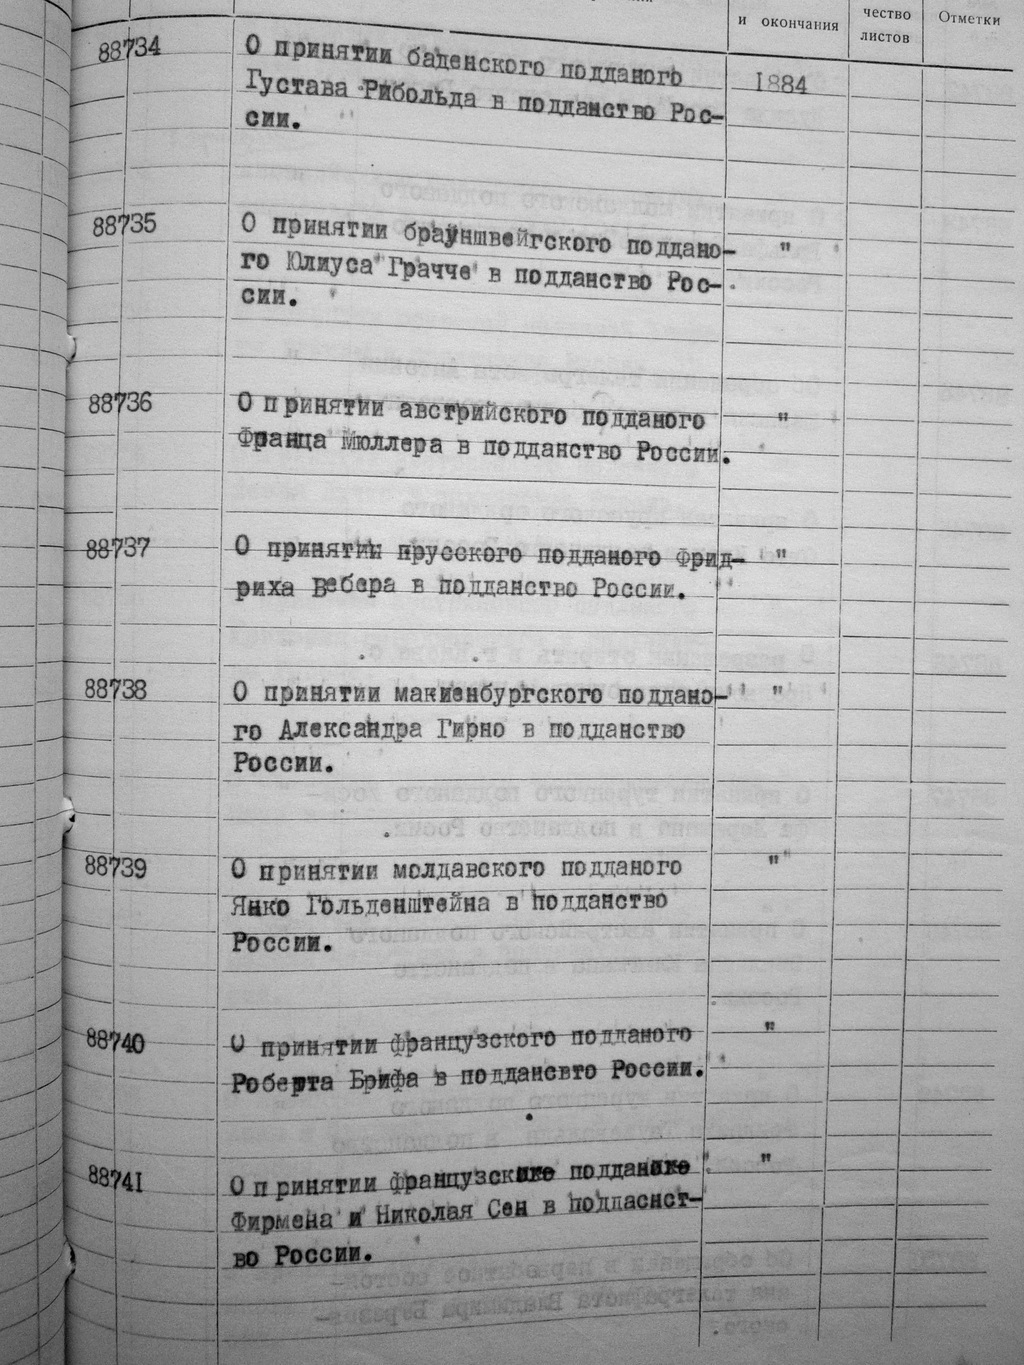 и окончания
чество
листов
Отметки
88734
О принятии баденского подданого
Густава Рибольда в подданство Рос-
сии.
1884
88735
О принятии брауншвейгского поддано-
го Юлиуса Грачче в подданство Рос-
сии.
"
88736
О принятии австрийского подданого
Франца Мюллера в подданство России.
"
88737
О принятии прусского подданого Фрид-
риха Вебера в подданство России.
"
88738
О принятии макленбургского поддано-
го Александра Гирно в подданство
России.
"
88739
О принятии молдавского подданого
Янко Гольденштейна в подданство
России.
"
88740
О принятии французского подданого
Роберта Брифа вподдансвто России.
"
88741
О принятии французских подданих
Фирмена и Николая Сен в
во России.
"